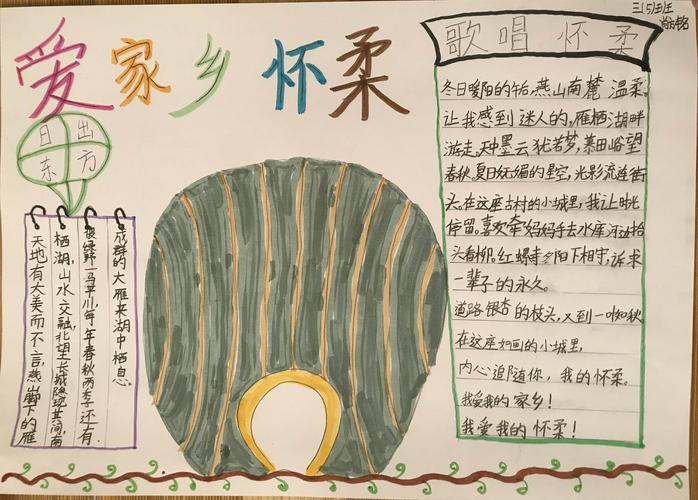 爱家乡 怀柔
三(5)班
歌唱怀柔
日出
东方
天地有大美而不言,燕 脚下的雁
栖湖,山水交融,北望长城隐现其间,南
绿野一马平川,每年春秋两季还有
成群的大雁来湖中栖息。
冬日暖阳的午后,燕山南麓 温柔。
让我感到 迷人的,雁栖湖畔
游走。天中墨云犹若梦,慕田峪望
春秋。夏日妩媚的星空,光影流连街
头。在这座古村的小城里,我让时光
停留。喜欢牵妈妈手去水库 抬
头看柳。红螺寺夕阳下相守,诉求
一辈子的永久。
道路银杏的枝头,又到一叶知秋
在这座如画的小城里,
内心追随你,我的怀柔。
我爱我的家乡!
我爱我的怀柔!